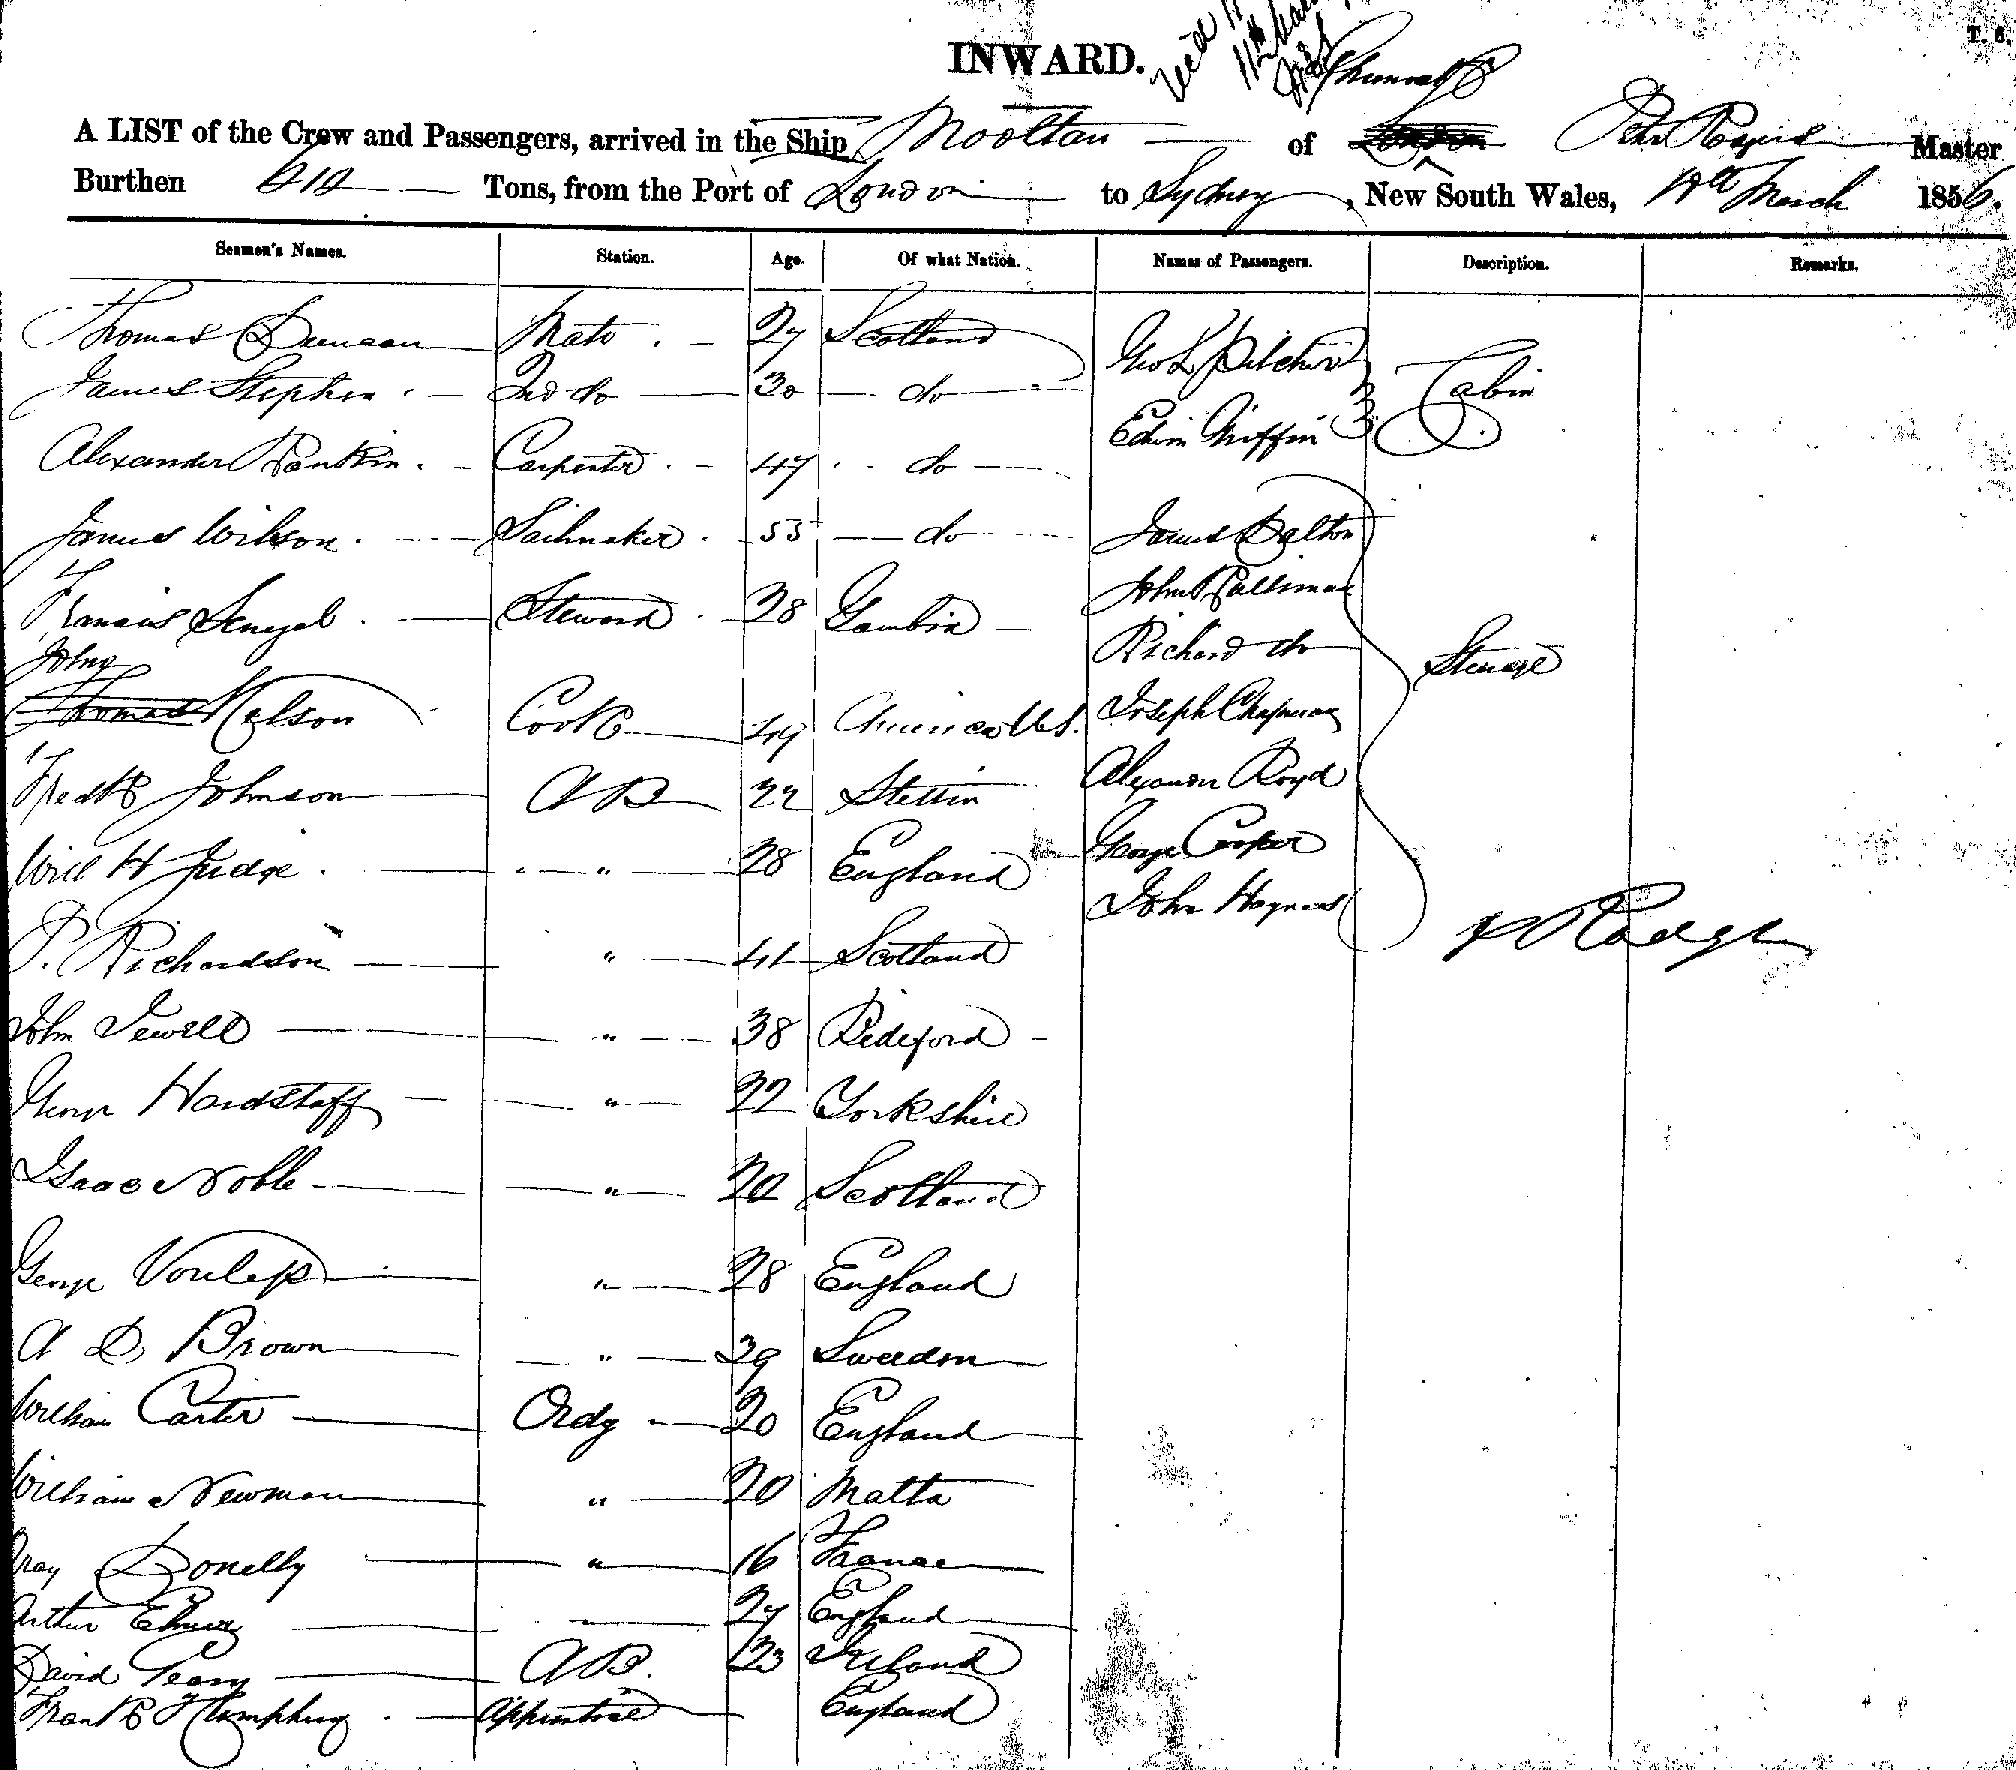 INWARD.
T. 6.
A LIST of the Crew and Passengers, arrived in the Ship Mooltan of London Peter Rodgers Master
Burthen Tons, from the Port of London to Sydney, New South Wales, March 1856.
Seamen's Names. Station. Age. Of what Nation. Names of Passengers. Description. Remarks.
Thomas Duncan Mate 27 Scotland
Geo L Pilcher
James Stephen 2nd do 30 do Cabin
Edwin Griffin
Alexander Rankin Carpenter 47 do
James Wilson Sailmaker 55 do James Dalton
John
Francis Senegal Steward 28 Gambia
Richard do
John Steerage
Thomas Nelson Cook 49 America U.S. Joseph Chapman
Fredk Johnson AB 22 Stettin Alexander Boyd
Will H Judge " " 28 England George Cooper
John Haynes
P. Richardson " 41 Scotland
John Jewell " 38 Bideford
George Hardstaff " 22 Yorkshire
Isaac Noble " 20 Scotland
George " 28 England
A D Brown " 39 Sweedon
William Carter Ordy 20 England
William Newman " 20 Malta
Donelly " 16 France
Arthur 27 England
David AB. 23 Ireland
Frank Humphrey Apprentice England